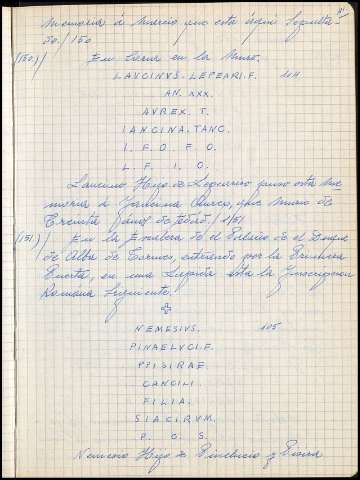 Memoria á Mercio que esta aqui Sepulta-
do./150.
(150.)/ En Coria en la Muro.
LAUCINVS. LEPEARI. F. 104
AN. XXX.
AVREX. T.
IANCINA. TANC.
I. F. O. F. O.
L. F. I. C.
Laucino Hijo de puso esta me
moria á que Murio de
Treinta Años de Edad/151
(151.)/ En la de el de el Duque
de Alba de Tormes, entrando por la Primera
Puerta, en una Lapida esta la Inscripcion
Romana Siguiente.
NEMESIVS. 105
PINAELVCI. F.
PFISIRAE.
CANCILI.
FILIA.
SIACIRVM.
P. O. S.
Nemesio Hijo de Pinelucio y